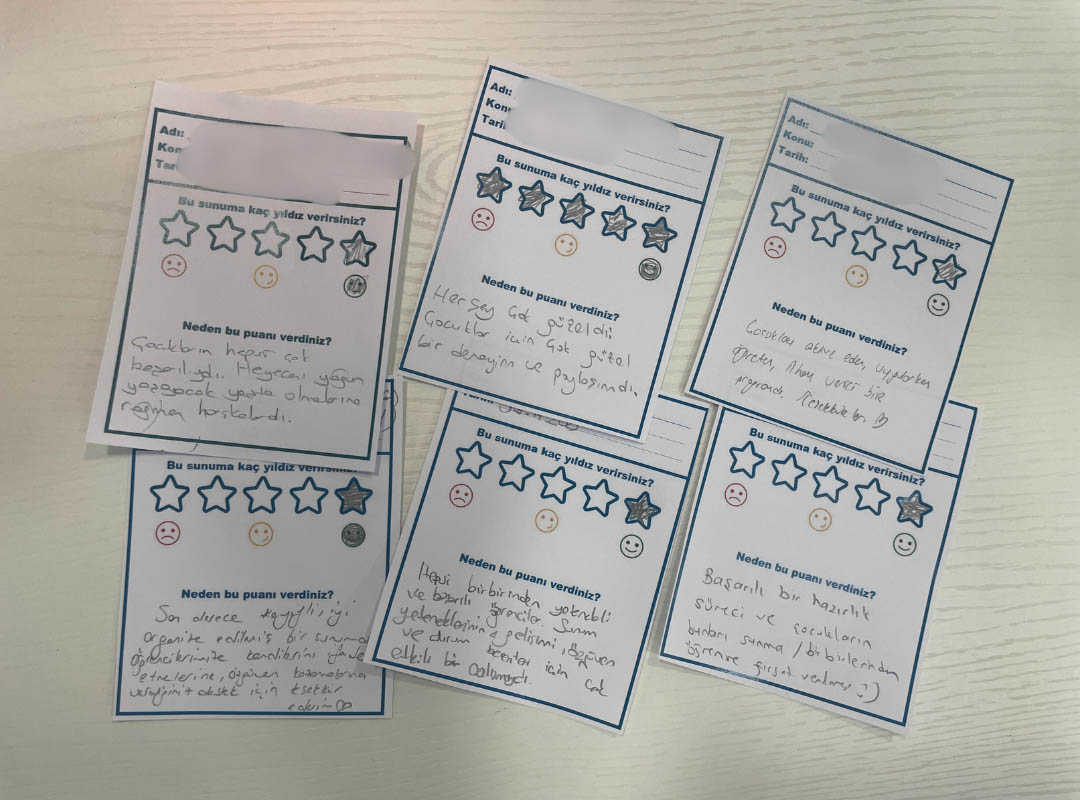 Adı:
Kon
Tari
Bu sunuma kaç yıldız verirsiniz?
Neden bu puanı verdiniz?
Çocukların hepsi çok
başarılıydı. Heyecanı yoğun
yaşayacak yaşta olmalarına
rağmen harikalardı.
Adı:
Konu
Tarih
Bu sunuma kaç yıldız verirsiniz?
Neden bu puanı verdiniz?
Herşey çok güzeldi
Çocuklar için çok güzel
bir deneyim ve paylaşımdı.
Adı:
Konu:
Tarih:
Bu sunuma kaç yıldız verirsiniz?
Neden bu puanı verdiniz?
Çocukları aktive eden, uygularken
öğreten, ilham verici bir
programdı.
Bu sunuma kaç yıldız verirsiniz?
Neden bu puanı verdiniz?
Son derece keyifli, iyi
organize edilmiş bir sunumdu
öğrencilerimize kendilerini ifade
etmelerine, özgüven kazanmalarına
verdiğiniz destek için teşekkür
ederim
Bu sunuma kaç yıldız verirsiniz?
Neden bu puanı verdiniz?
Hepsi birbirinden yetenekli
ve başarılı öğrenciler. Sunum
yeteneklerinin gelişimi, özgüven
ve durum için çok
etkili bir çalışmaydı.
Bu sunuma kaç yıldız verirsiniz?
Neden bu puanı verdiniz?
Başarılı bir hazırlık
süreci ve çocukların
bunları sunma / birbirlerinden
öğrenme fırsatı verilmesi :)